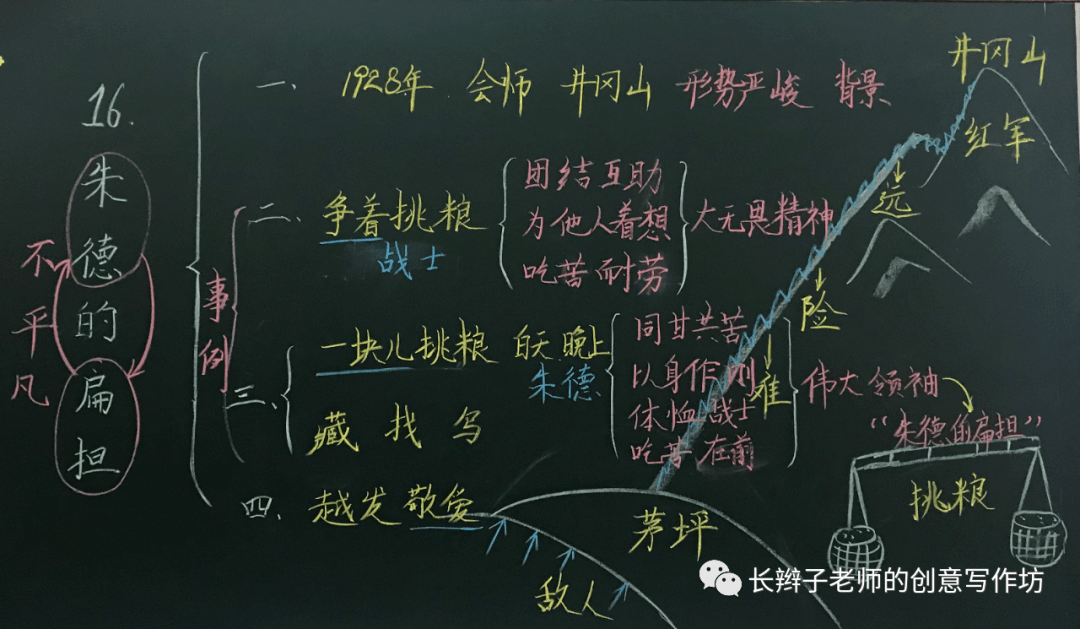 16.
朱德的扁担
不平凡
一、1928年 会师 井冈山 形势严峻 背景
事例
二、争着挑粮
战士
团结互助
为他人着想
吃苦耐劳
大无畏精神
三、一块儿挑粮 白天 晚上
朱德
藏 找 写
同甘共苦
以身作则
体恤战士
吃苦在前
伟大领袖
四、越发敬爱
井冈山
红军
远
险
难
茅坪
敌人
“朱德的扁担”
挑粮
长辫子老师的创意写作坊